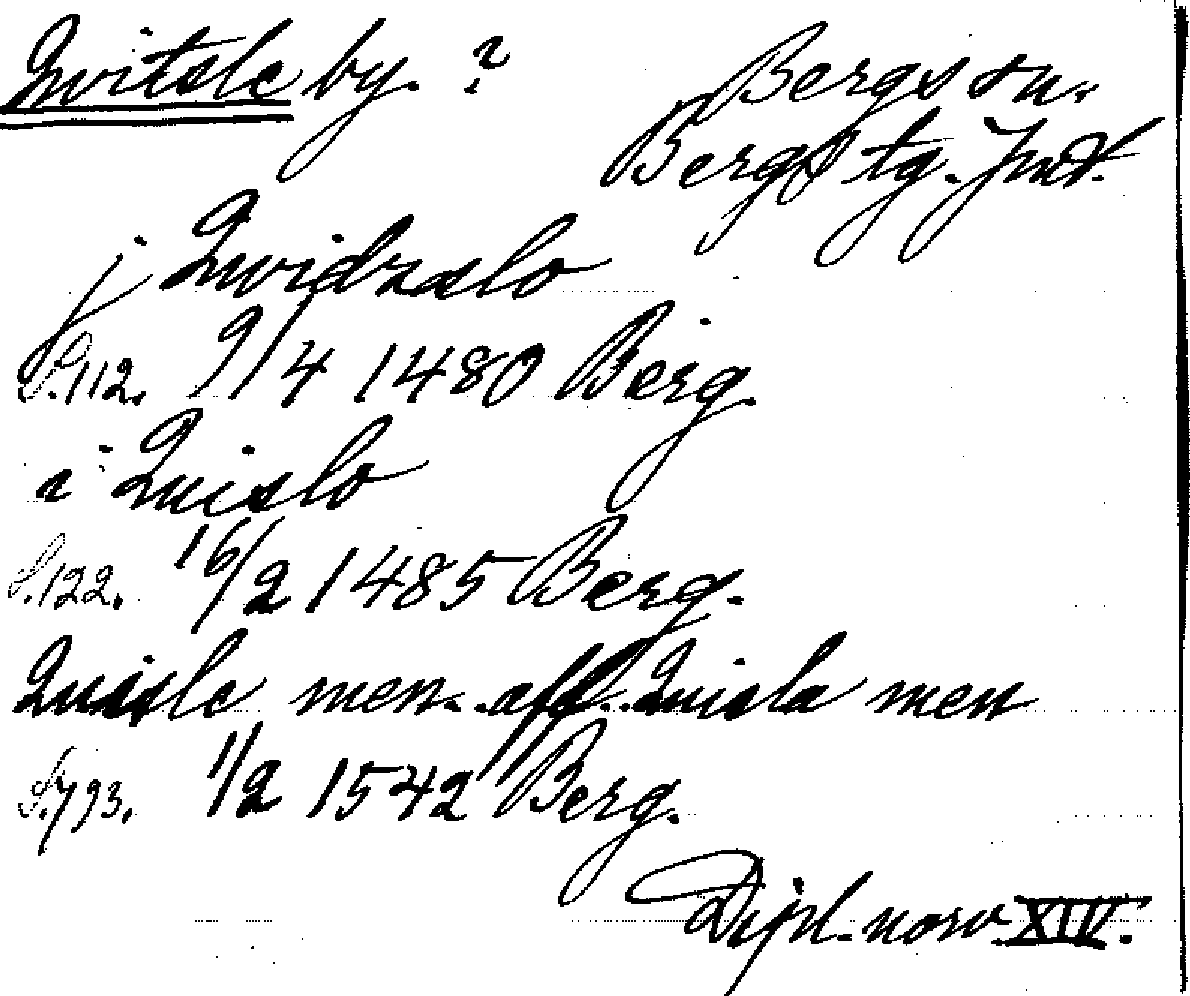 Qvitsle by. ?
Bergs sn.
Bergs tg. Jmtl.
j Qwidzslo
S.112. 9/4 1480 Berg.
i Quislo
S.122. 16/2 1485 Berg.
Quisle men aff Quisla men
S.793. 1/2 1542 Berg.
Dipl. norv XIV.